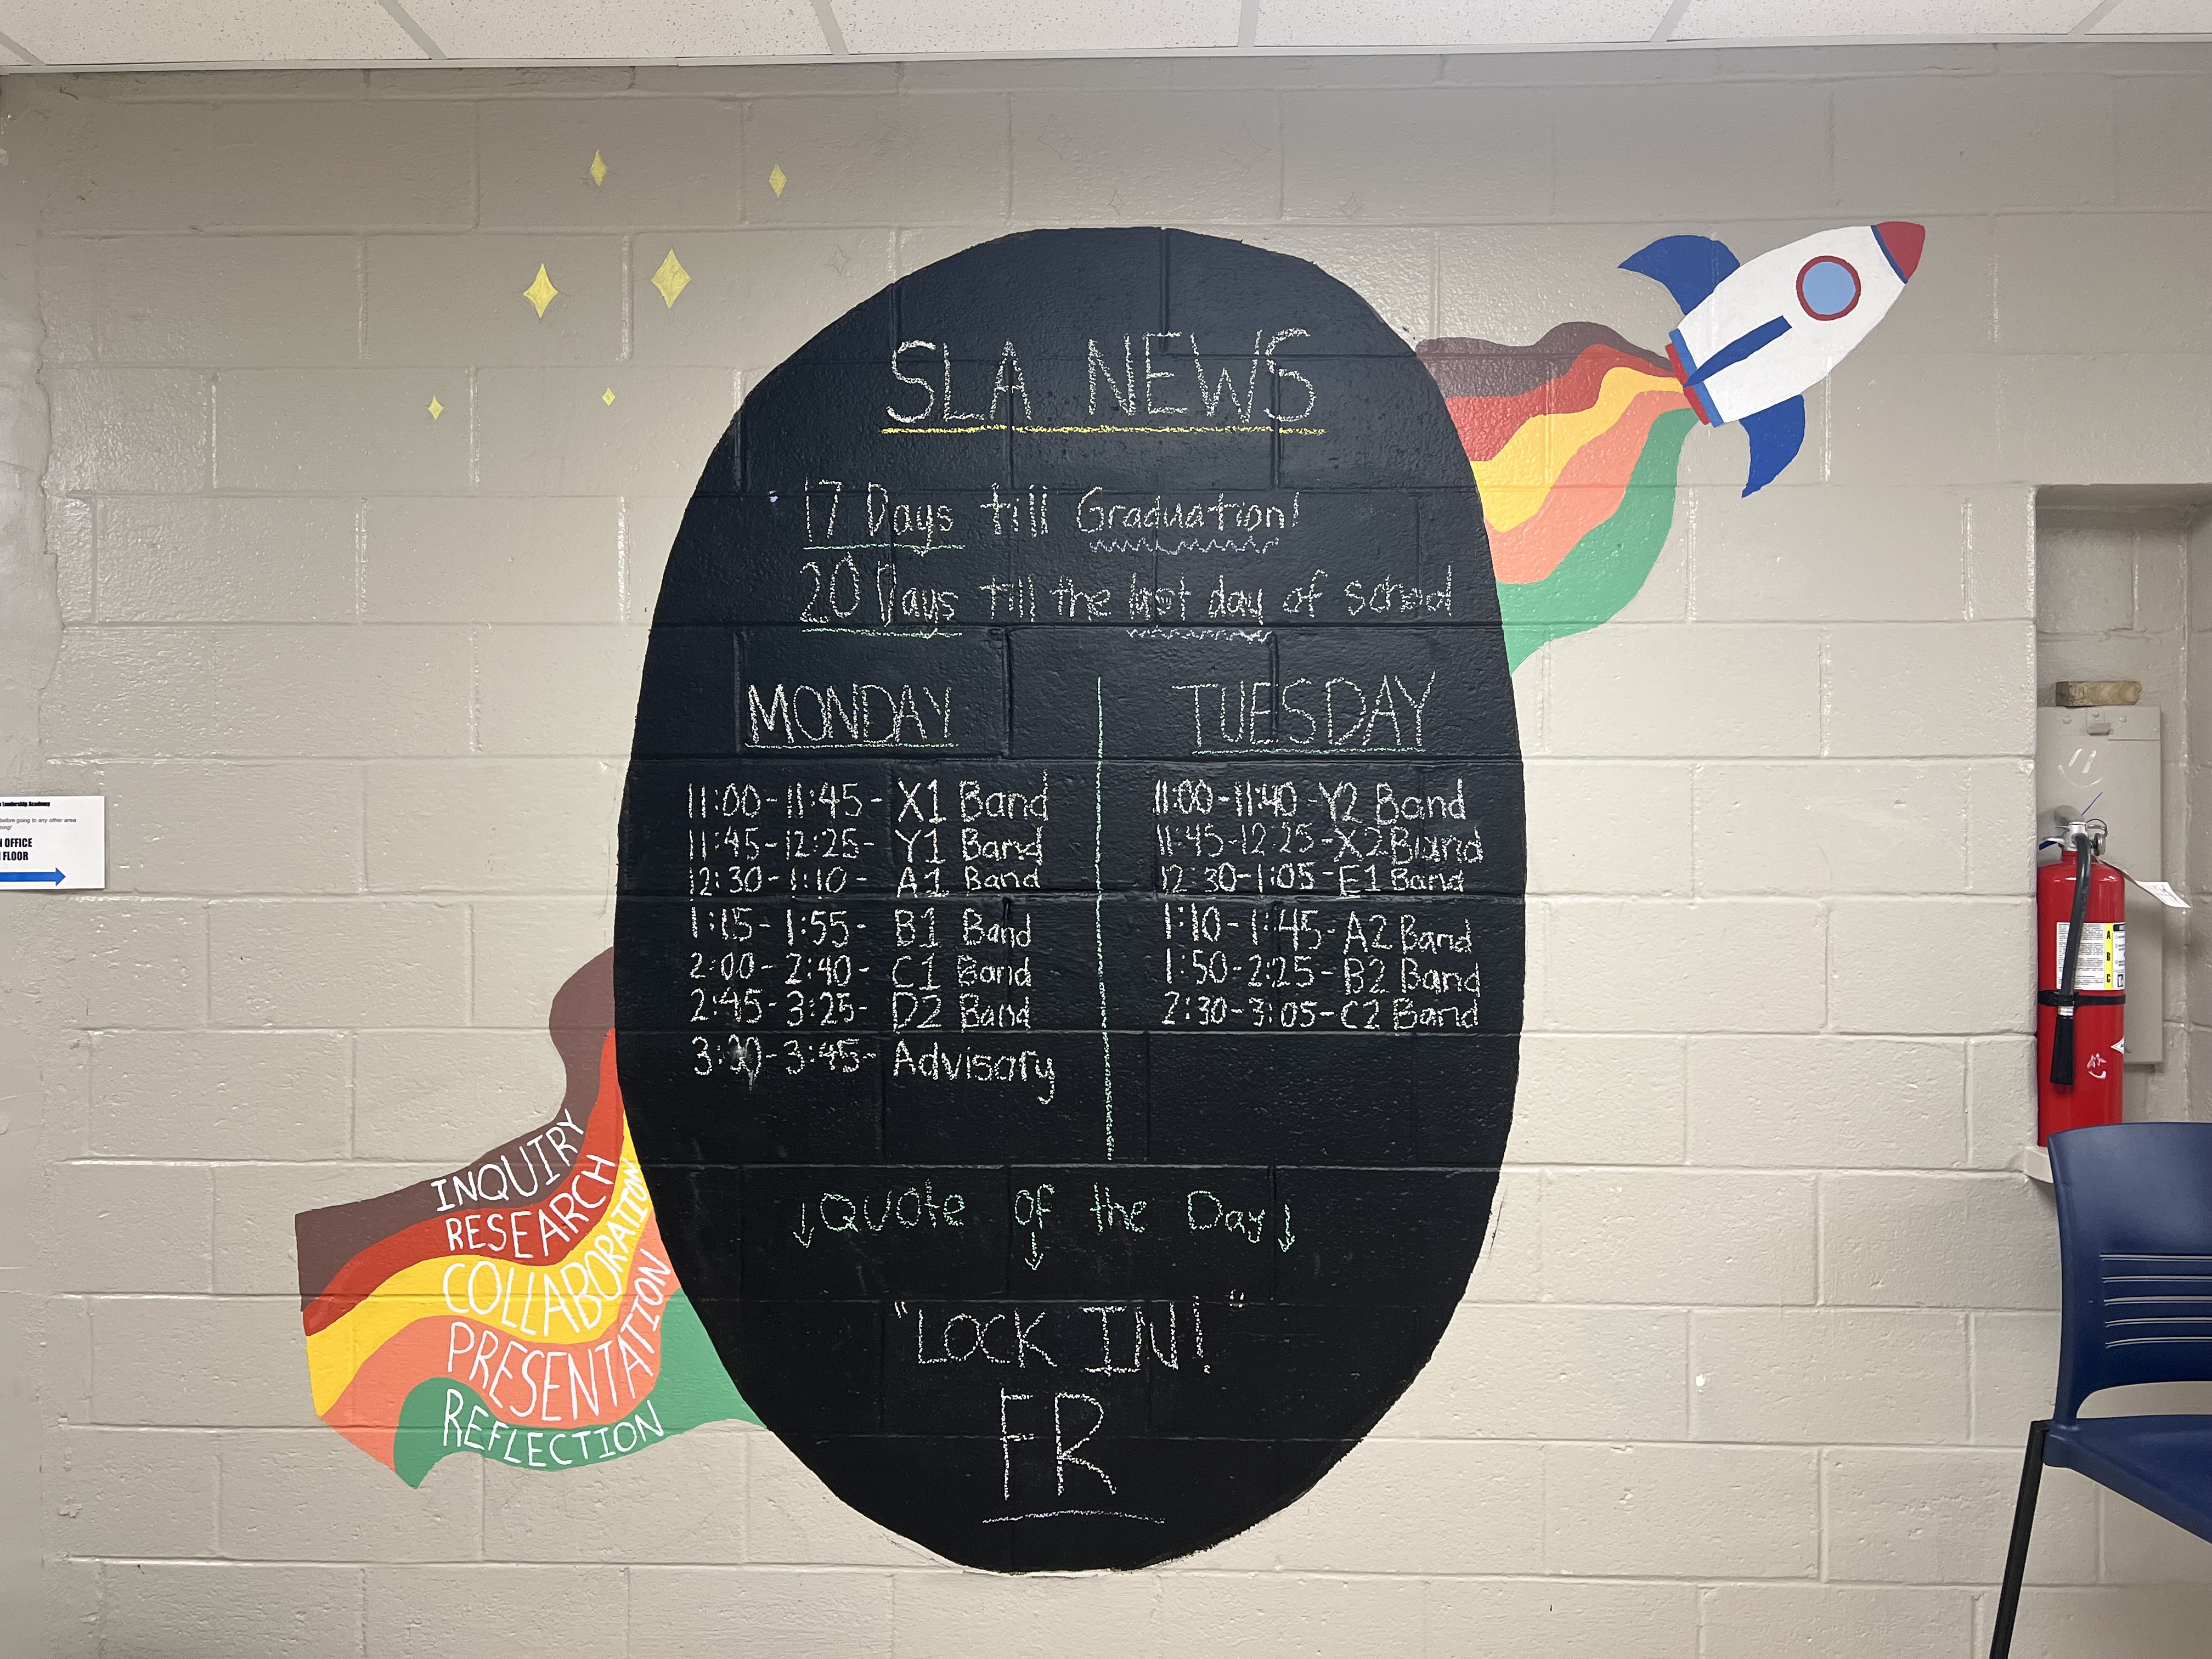 SLA NEWS
17 Days till Graduation!
20 Days till the last day of school
MONDAY
11:00-11:45- X1 Band
11:45-12:25- Y1 Band
12:30-1:10- A1 Band
1:15-1:55- B1 Band
2:00-2:40- C1 Band
2:45-3:25- D2 Band
3:30-3:45- Advisory
TUESDAY
11:00-11:40-Y2 Band
11:45-12:25-X2 Band
12:30-1:05-E1 Band
1:10-1:45-A2 Band
1:50-2:25-B2 Band
2:30-3:05-C2 Band
↓QUOte of the Day↓
↓
"LOCK IN!"
FR
INQUIRY
RESEARCH
COLLABORATION
PRESENTATION
REFLECTION
Leadership Academy
before going to any other area
OFFICE
FLOOR
A
B
C